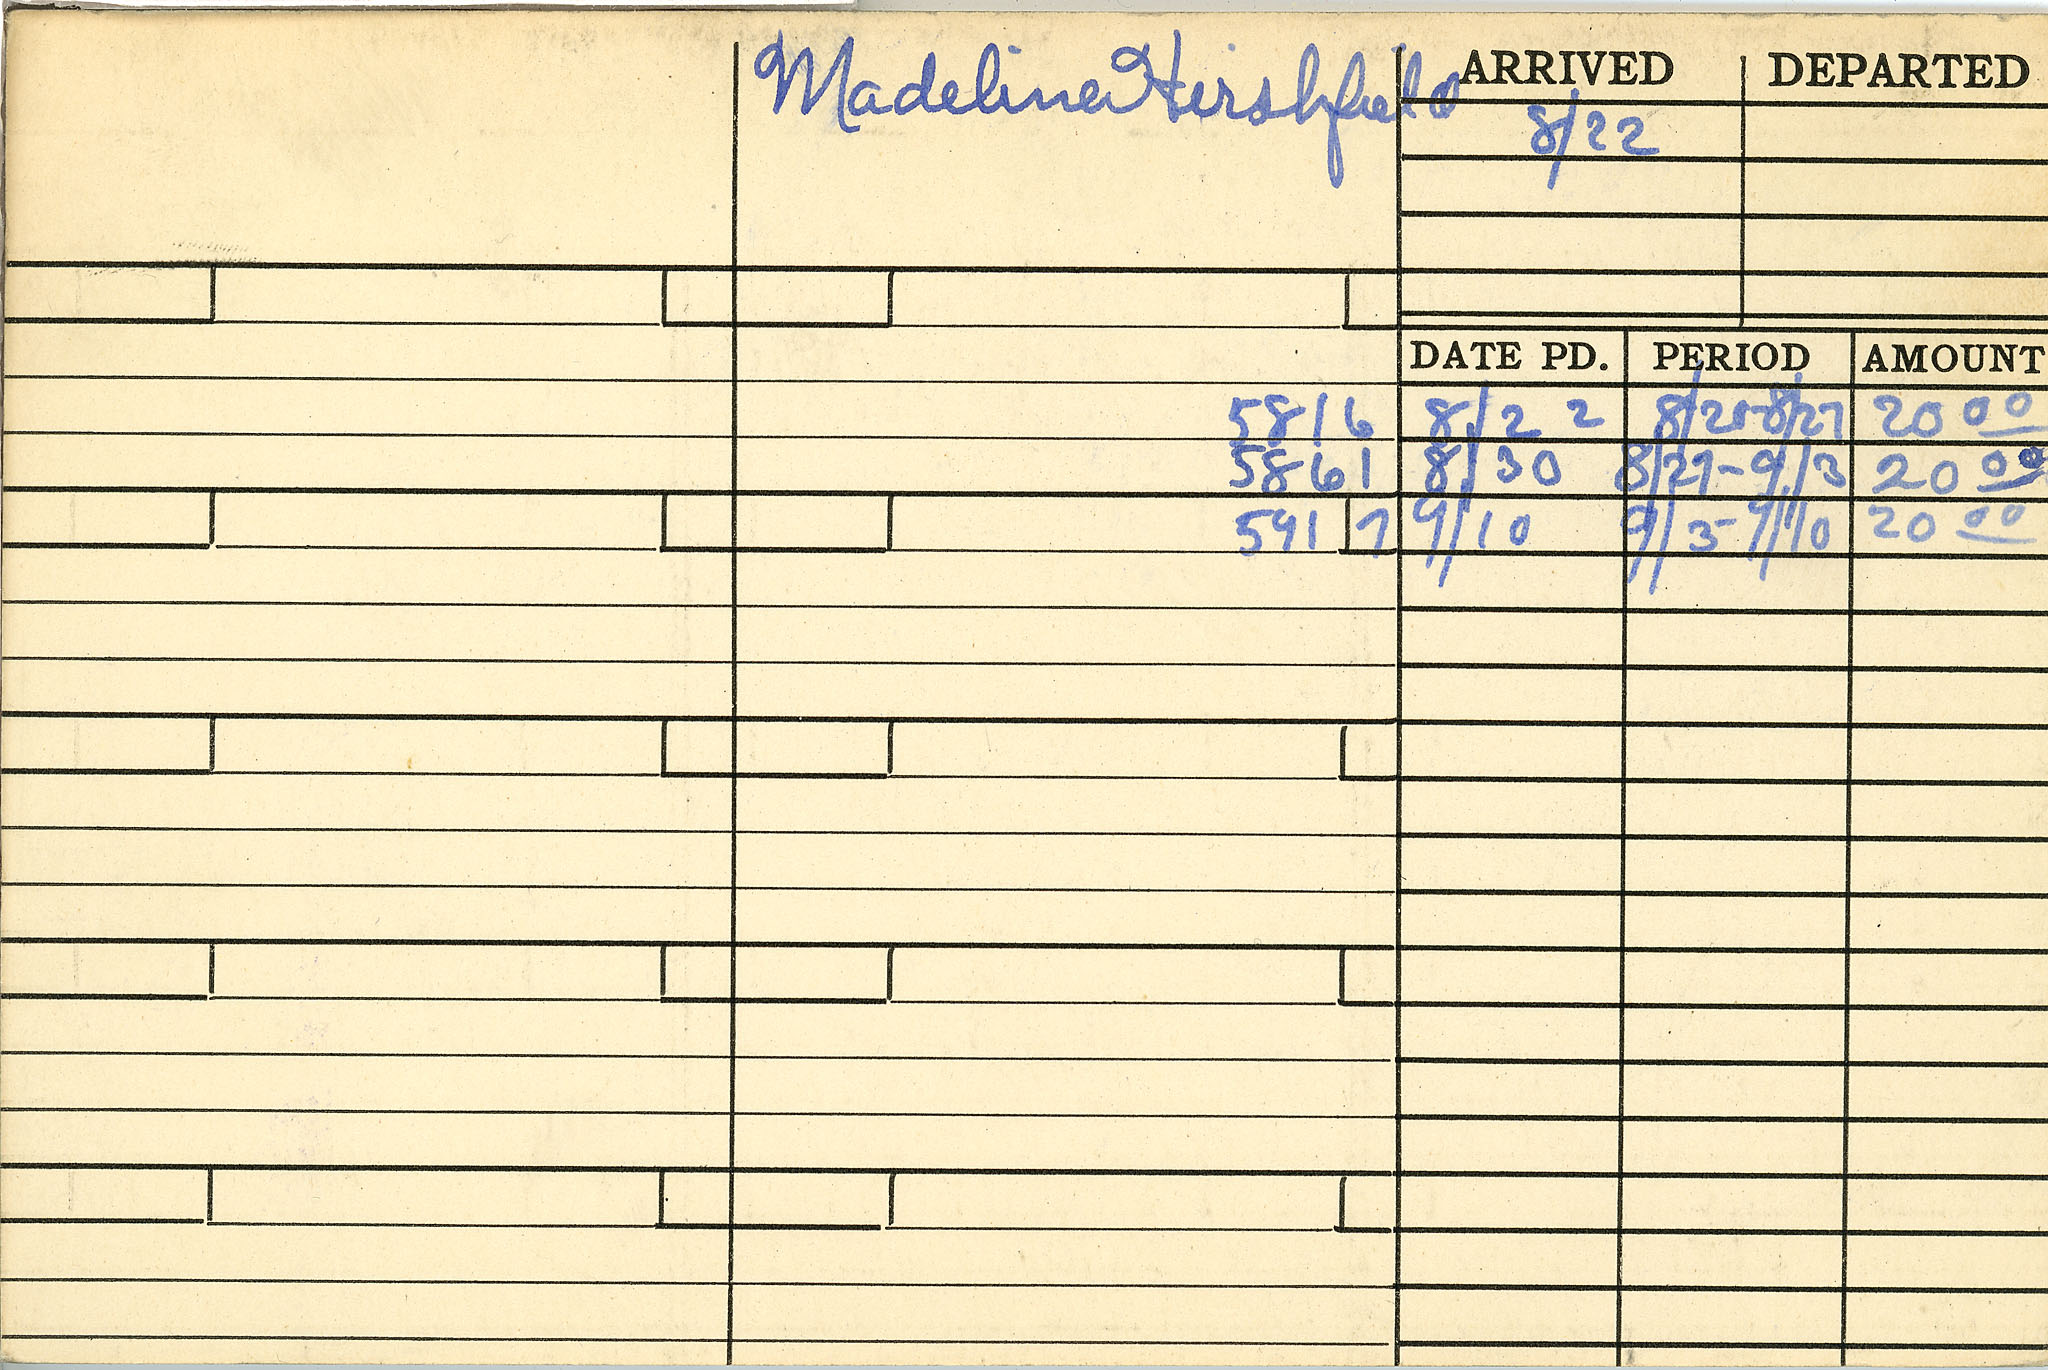 Madeline Hirshfield
ARRIVED DEPARTED
8/22
DATE PD. PERIOD AMOUNT
5816 8/22 8/20-8/27 20 00
5861 8/30 8/27-9/3 20 00
5917 9/10 9/3-9/10 20 00